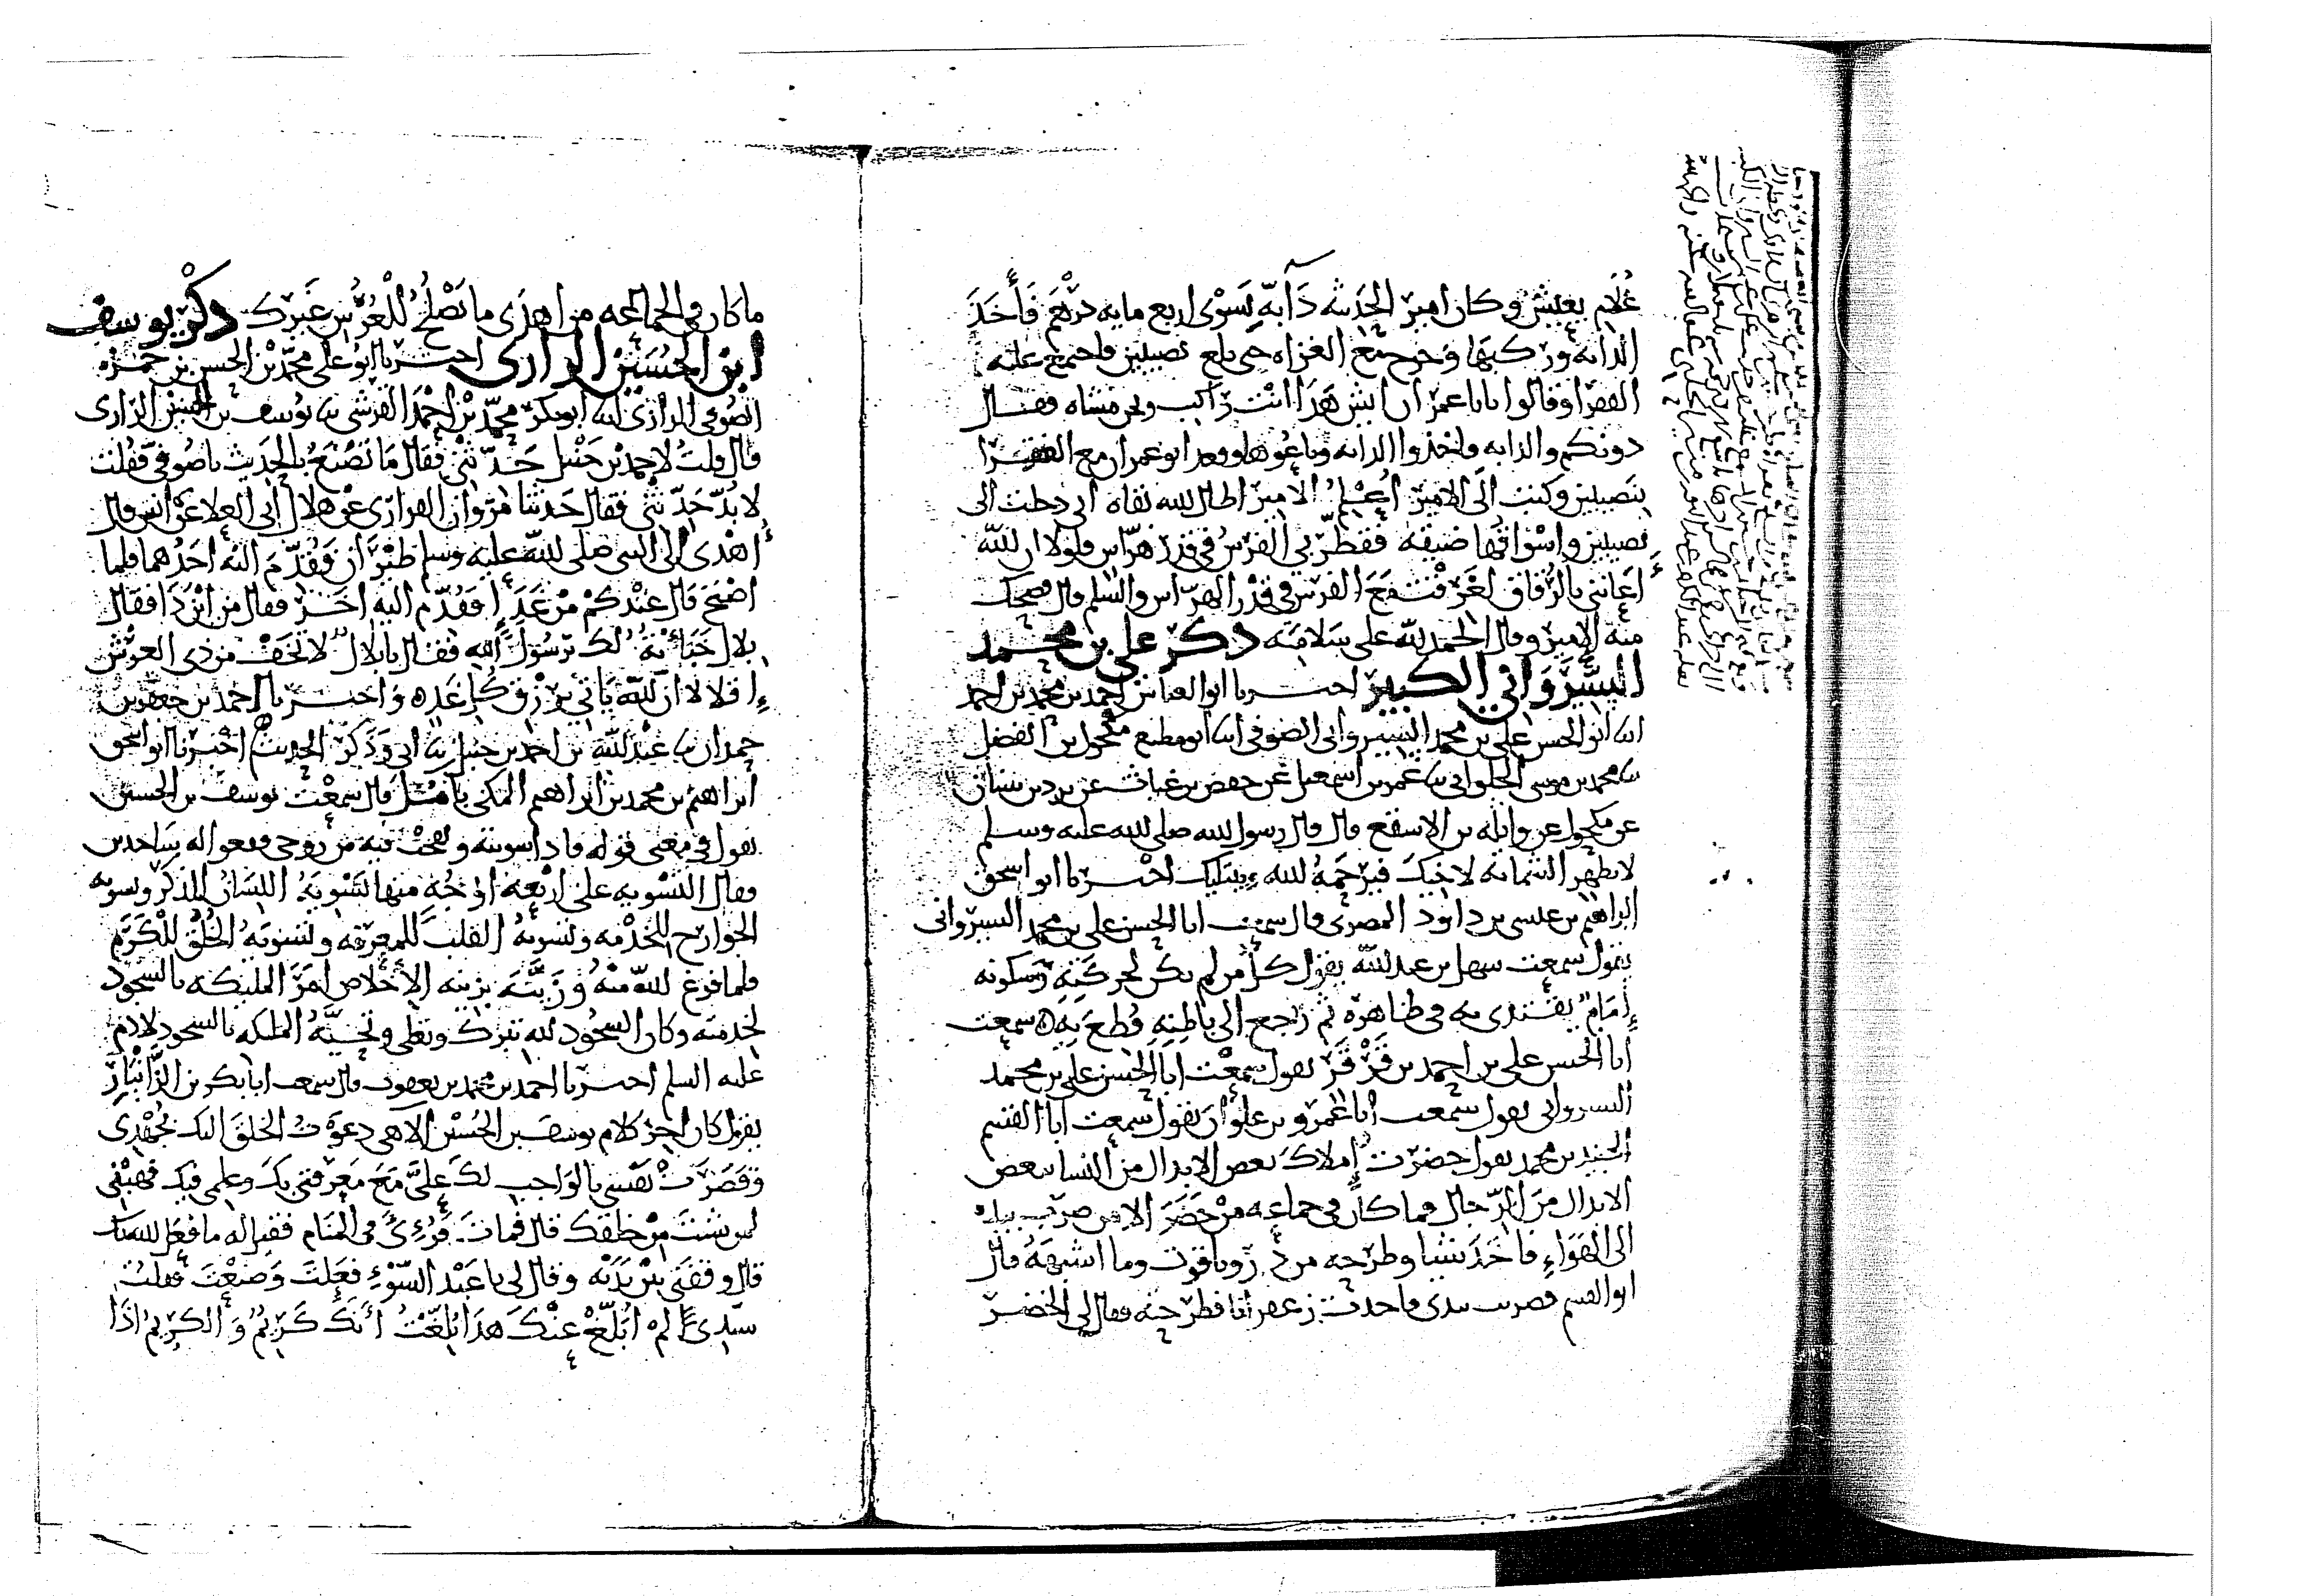 غلام بعيش وكان امير الحديثه دآبه يسوى اربع مايه درهم فأخذ
الدابه وركبها وخرج مع الغزاه حتى بلغ نصيبين فاجتمع عليه
الفقرا وقالوا يابا عمران ايش هذا انت راكب ونحن مشاه فقال
دونكم والدابه فاخذوا الدابه وباعوها وقعد ابو عمران مع الفقرا
بنصيبين وكتب الى الامير أعلم الامير اطال الله بقاه اني دخلت الى
نصيبين واسواقها ضيقه فقطر بي الفرس في قدر هراس فلولا ان الله
أعانني بالرفاق لغرقت مع الفرس في قدر الهراس والسلم قال فضحك
منه الامير وقال الحمد لله على سلامته ذكر علي بن محمد
السيرواني الكبير اخبرنا ابو العباس احمد بن محمد بن احمد
انا ابو الحسن علي بن محمد السيرواني الصوفي انا ابو مطيع مكحول بن الفضل
نا محمد بن موسى الحلواني نا عمر بن اسمعيل عن حفص بن غياث عن برد بن سنان
عن مكحول عن واثله بن الاسقع قال قال رسول الله صلى الله عليه وسلم
لا تظهر الشماته لاخيك فيرحمه الله ويبتليك اخبرنا ابو اسحق
ابراهيم بن عيسى بن داود المصري قال سمعت ابا الحسن علي بن محمد السيرواني
يقول سمعت سهل بن عبد الله يقول كل من لم يكن لحركته وسكونه
إمام يقتدى به في ظاهره ثم رجع الى باطنه قطع به ه سمعت
أبا الحسن علي بن احمد بن قرقر يقول سمعت ابا الحسن علي بن محمد
السيرواني يقول سمعت أبا عمرو بن علوان يقول سمعت أبا القسم
الجنيد بن محمد يقول حضرت إملاك بعض الابدال من النسا ببعض
الابدال من الرجال فما كان في جماعه من حضر الا من ضرب بيده
الى الهواء فاخذ شيا وطرحه من در وياقوت وما اشبهه قال
ابو القسم فضربت بيدي فاخذت زعفرانا فطرحته فقال لي الخضر
ما كان في الجماعه من اهدى ما يصلح للعرس غيرك ذكر يوسف
ابن الحسين الرازي اخبرنا ابو علي محمد بن الحسن بن حمزه
الصوفي الرازي انا ابو بكر محمد بن احمد القرشي نا يوسف بن الحسين الرازي
قال قلت لاحمد بن حنبل حدثني فقال ما تصنع بالحديث يا صوفي فقلت
لا بد حدثني فقال حدثنا مروان الفزاري عن هلال ابي العلا عن انس قال
أهدى الى النبي صلى الله عليه وسلم طيران فقدم اليه احدهما فلما
اصبح قال عندكم من غداء فقدم اليه اخر فقال من اين ذا فقال
بلال خبأته لك يرسول الله فقال يا بلال لا تخف من ذي العرش
إقلالا ان الله ياتي برزق كل غده واخبرنا احمد بن جعفر بن
حمدان نا عبد الله بن احمد بن حنبل نا ابي وذكر الحديث اخبرنا ابو اسحق
ابراهيم بن محمد بن ابراهيم المكي بآمل قال سمعت يوسف بن الحسين
يقول في معنى قوله فاذا سويته ونفخت فيه من روحي فقعوا له ساجدين
فقال التسويه على اربعة اوجه منها تسوية اللسان للذكر وتسويه
الجوارح للخدمه وتسوية القلب للمعرفه وتسوية الخلق للكرم
فلما فرغ الله منه وزينه بزينه الإخلاص امر المليكه بالسجود
لخدمته وكان السجود لله تبرك وتعلى وتحية الملكه بالسجود لادم
عليه السلم اخبرنا احمد بن محمد بن يعقوب قال سمعت ابا بكر بن الزانيار
يقول كان اخر كلام يوسف بن الحسين الاهي دعوت الخلق اليك بجهدي
وقصرت نفسي بالواجب لك علي مع معرفتي بك وعلمي فيك فهبني
لمن شئت من خلقك قال فمات فرءي في المنام فقيل له ما فعل الله بك
قال وقفني بين يديه وقال لي يا عبد السوء فعلت وصنعت فقلت
سيدي لم أبلغ عنك هذا بلغت أنك كريم والكريم اذا